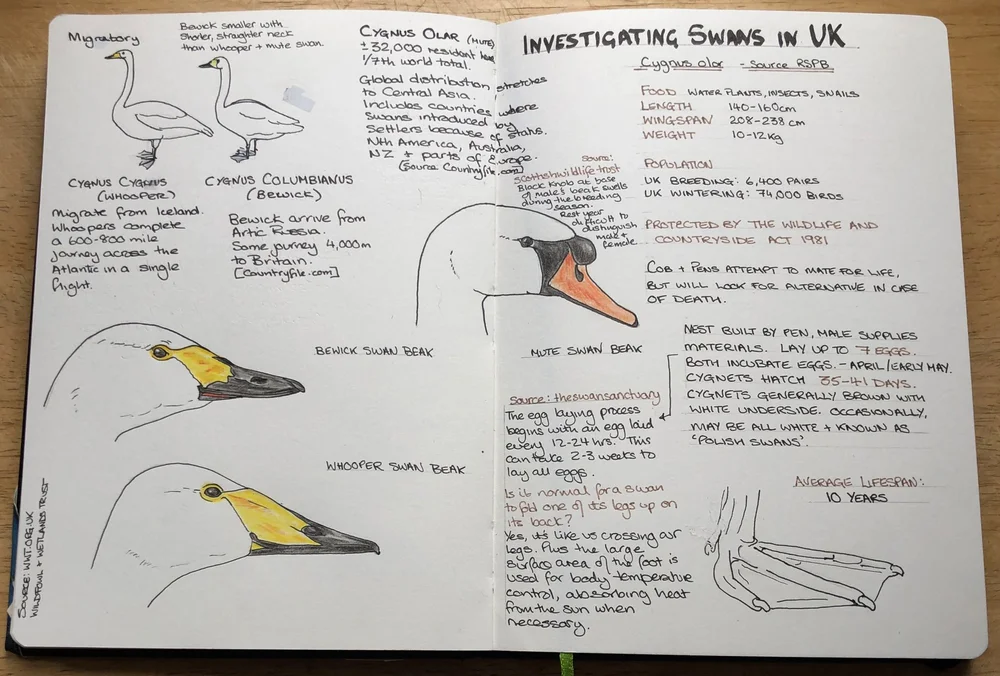 Migratory
Bewick smaller with
shorter, straighter neck
than whooper + mute swan.
CYGNUS CYGNUS
(WHOOPER)
Migrate from Iceland.
Whoopers complete
a 600-800 mile
journey across the
Atlantic in a single
flight.
CYGNUS COLUMBIANUS
(BEWICK)
Bewick arrive from
Artic Russia.
Same journey 4,000m
to Britain.
[Countryfile.com]
CYGNUS OLAR (MUTE)
± 32,000 resident here
1/7th world total.
Global distribution stretches
to Central Asia.
Includes countries where
Swans introduced by
Settlers because of status.
Nth America, Australia,
NZ + parts of Europe.
(Source Countryfile.com)
BEWICK SWAN BEAK
WHOOPER SWAN BEAK
SOURCE: WWT.ORG.UK
WILDFOWL + WETLANDS TRUST
INVESTIGATING SWANS IN UK
Cygnus olor - Source RSPB
FOOD WATER PLANTS, INSECTS, SNAILS
LENGTH 140-160cm
WINGSPAN 208-238 cm
WEIGHT 10-12Kg
POPULATION
UK BREEDING: 6,400 PAIRS
UK WINTERING: 74,000 BIRDS
PROTECTED BY THE WILDLIFE AND
COUNTRYSIDE ACT 1981
COB + PENS ATTEMPT TO MATE FOR LIFE,
BUT WILL LOOK FOR ALTERNATIVE IN CASE
OF DEATH.
Source:
scottishwildlifetrust
Black Knob at base
of male's beak swells
during the breeding
season.
Rest year
difficult to
distinguish
male +
female
MUTE SWAN BEAK
NEST BUILT BY PEN, MALE SUPPLIES
MATERIALS. LAY UP TO 7 EGGS.
BOTH INCUBATE EGGS. - APRIL/EARLY MAY.
CYGNETS HATCH 35-41 DAYS.
CYGNETS GENERALLY BROWN WITH
WHITE UNDERSIDE. OCCASIONALLY,
MAY BE ALL WHITE + KNOWN AS
'POLISH SWANS'.
Source: theswansanctuary
The egg laying process
begins with an egg laid
every 12-24 hrs. This
can take 2-3 weeks to
lay all eggs.
Is it normal for a swan
to fold one of its legs up on
its back?
Yes, it's like us crossing our
legs. Plus the large
surface area of the foot is
used for body temperature
control, absorbing heat
from the sun when
necessary.
AVERAGE LIFESPAN:
10 YEARS